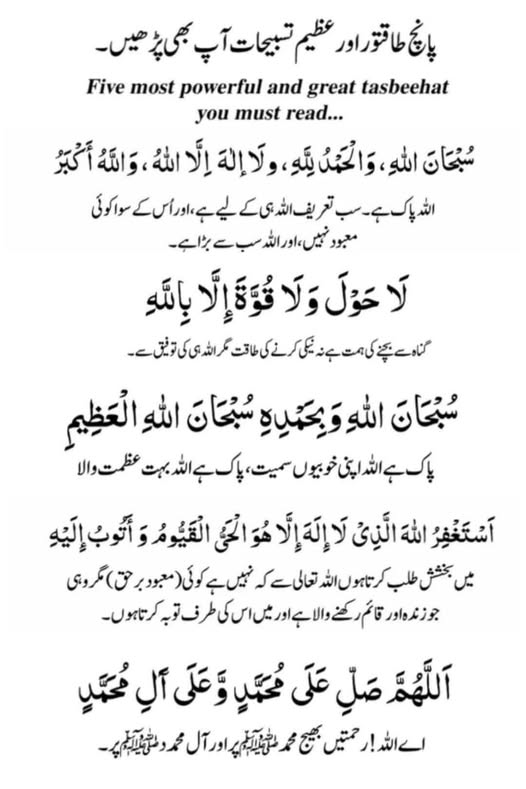 پانچ طاقتور اور عظیم تسبیحات آپ بھی پڑھیں۔
Five most powerful and great tasbeehat
you must read...
سُبْحَانَ اللهِ، وَالْحَمْدُ لِلّٰهِ، ولَا إِلٰهَ اِلَّا اللهُ، وَاللَّهُ أَكْبَرُ
اللہ پاک ہے۔ سب تعریف اللہ ہی کے لیے ہے، اور اُس کے سوا کوئی
معبود نہیں، اور اللہ سب سے بڑا ہے۔
لَا حَوْلَ وَلَا قُوَّةَ إِلَّا بِاللَّهِ
گناہ سے بچنے کی ہمت ہے نہ نیکی کرنے کی طاقت مگر اللہ ہی کی توفیق سے۔
سُبْحَانَ اللهِ وَبِحَمْدِهِ سُبْحَانَ اللهِ الْعَظِيمِ
پاک ہے اللہ اپنی خوبیوں سمیت، پاک ہے اللہ بہت عظمت والا
اَسْتَغْفِرُ اللهَ الَّذِىْ لَا إِلَهَ إِلَّا هُوَ الْحَىُّ الْقَيُّومُ وَ أَتُوبُ إِلَيْهِ
میں بخشش طلب کرتا ہوں اللہ تعالی سے کہ نہیں ہے کوئی (معبود برحق) مگر وہی
جو زندہ اور قائم رکھنے والا ہے اور میں اس کی طرف توبہ کرتا ہوں۔
اَللَّهُمَّ صَلِّ عَلَى مُحَمَّدٍ وَّعَلَى آلِ مُحَمَّدٍ
اے اللہ! رحمتیں بھیج محمد ﷺ پر اور آل محمد ﷺ پر۔